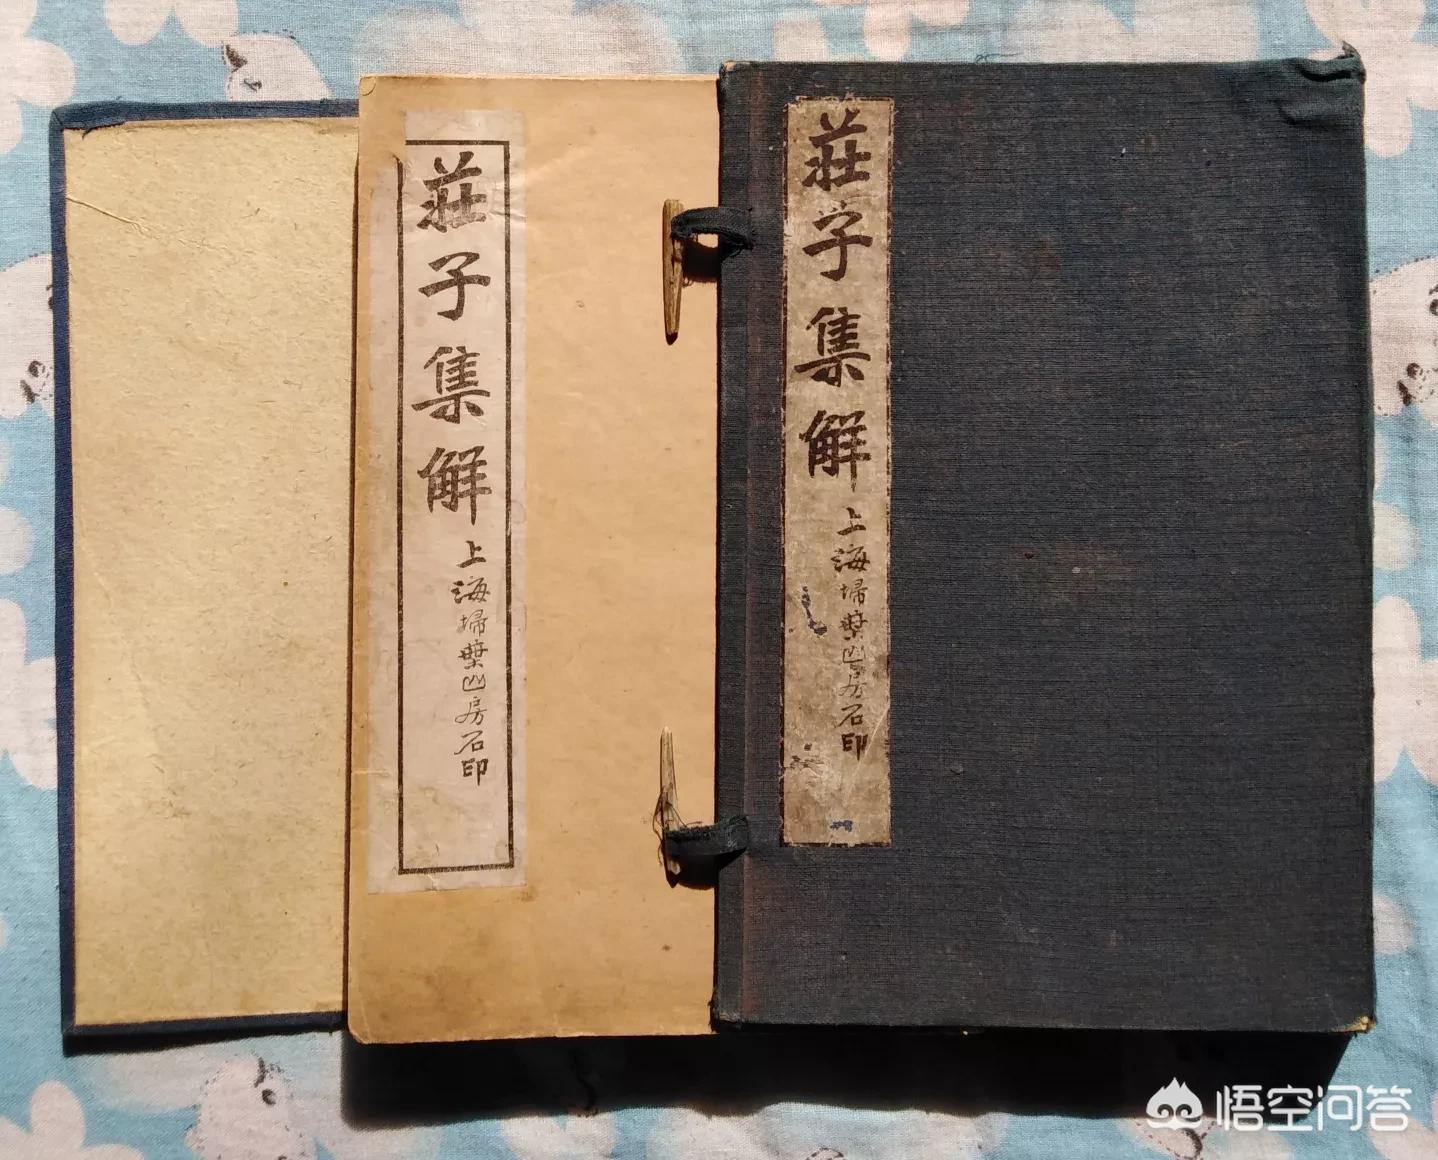 莊子集解
上海掃葉山房石印
莊子集解
上海掃葉山房石印
悟空问答